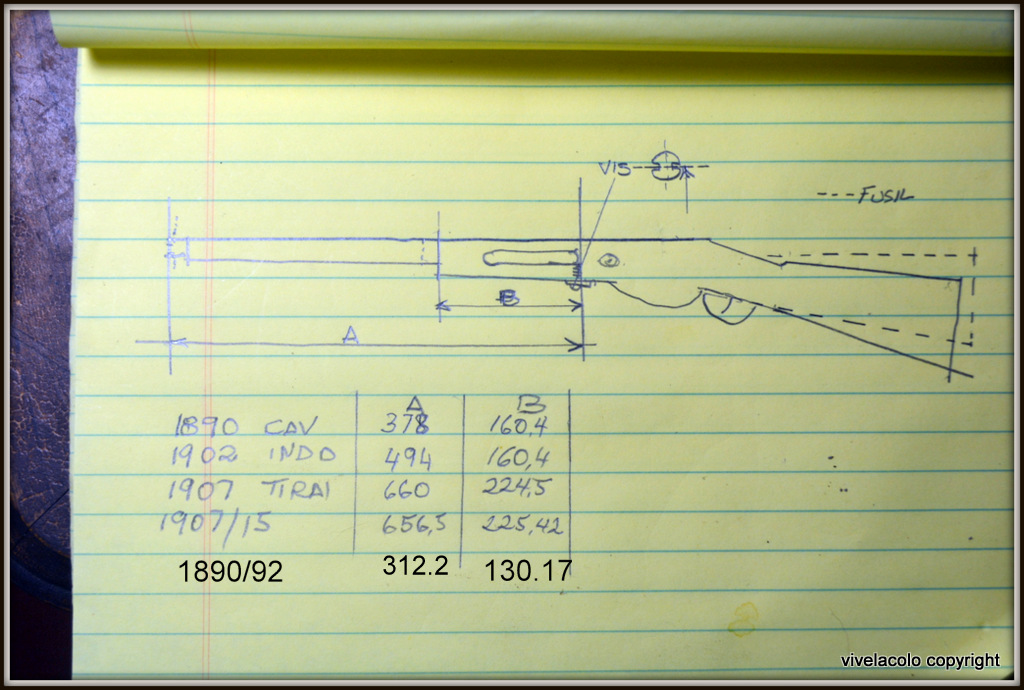 VIS
--- FUSIL
B
A
A B
1890 CAV 378 160,4
1902 INDO 494 160,4
1907 TIRAI 660 224,5
1907/15 656,5 225,42
1890/92 312.2 130.17
vivelacolo copyright